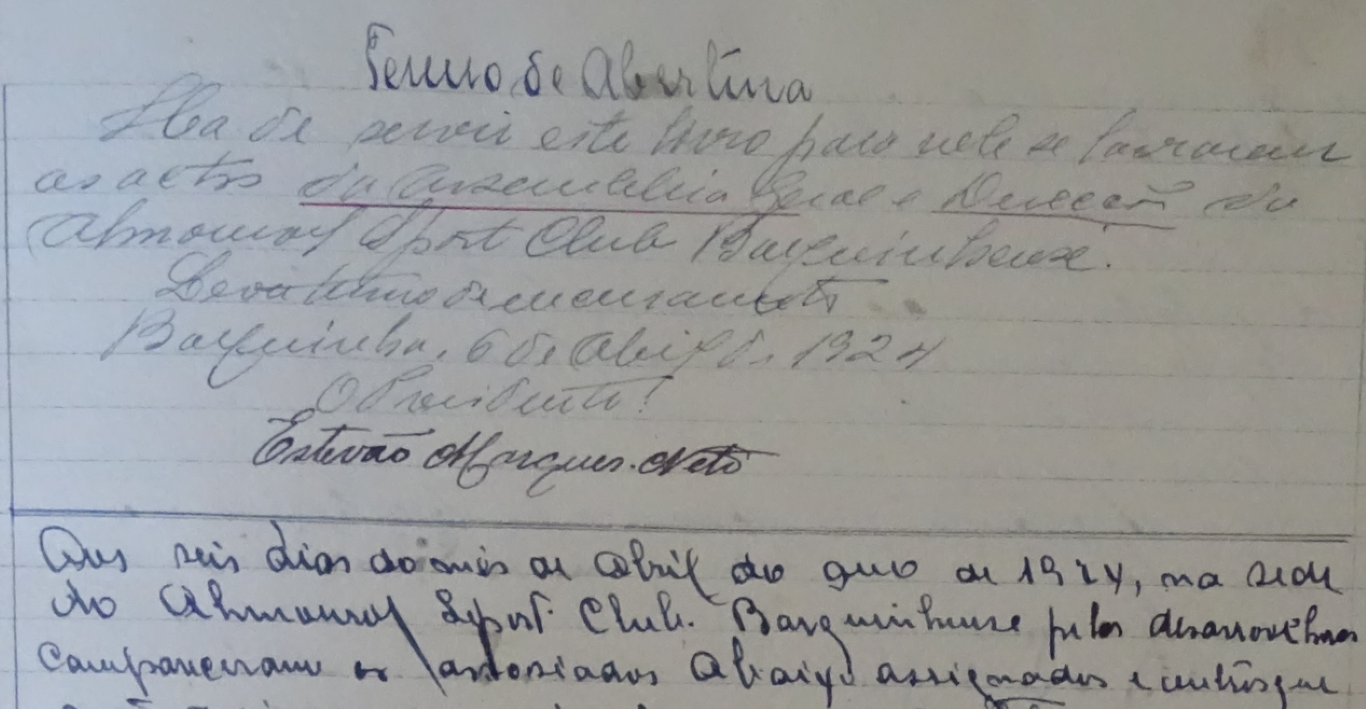 Termo de Abertura
Ha de servir este livro para nele se lavrarem
as actas da Assembleia Geral e Direcção do
Almourol Sport Club Barquinhense.
Leva termo de encerramento
Barquinha, 6 de Abril de 1924
O Presidente!
Estevão Marques Neto
Aos seis dias do mês de Abril do ano de 1924, na sede
do Almourol Sport Club Barquinhense pelas
compareceram os associados abaixo assignados e